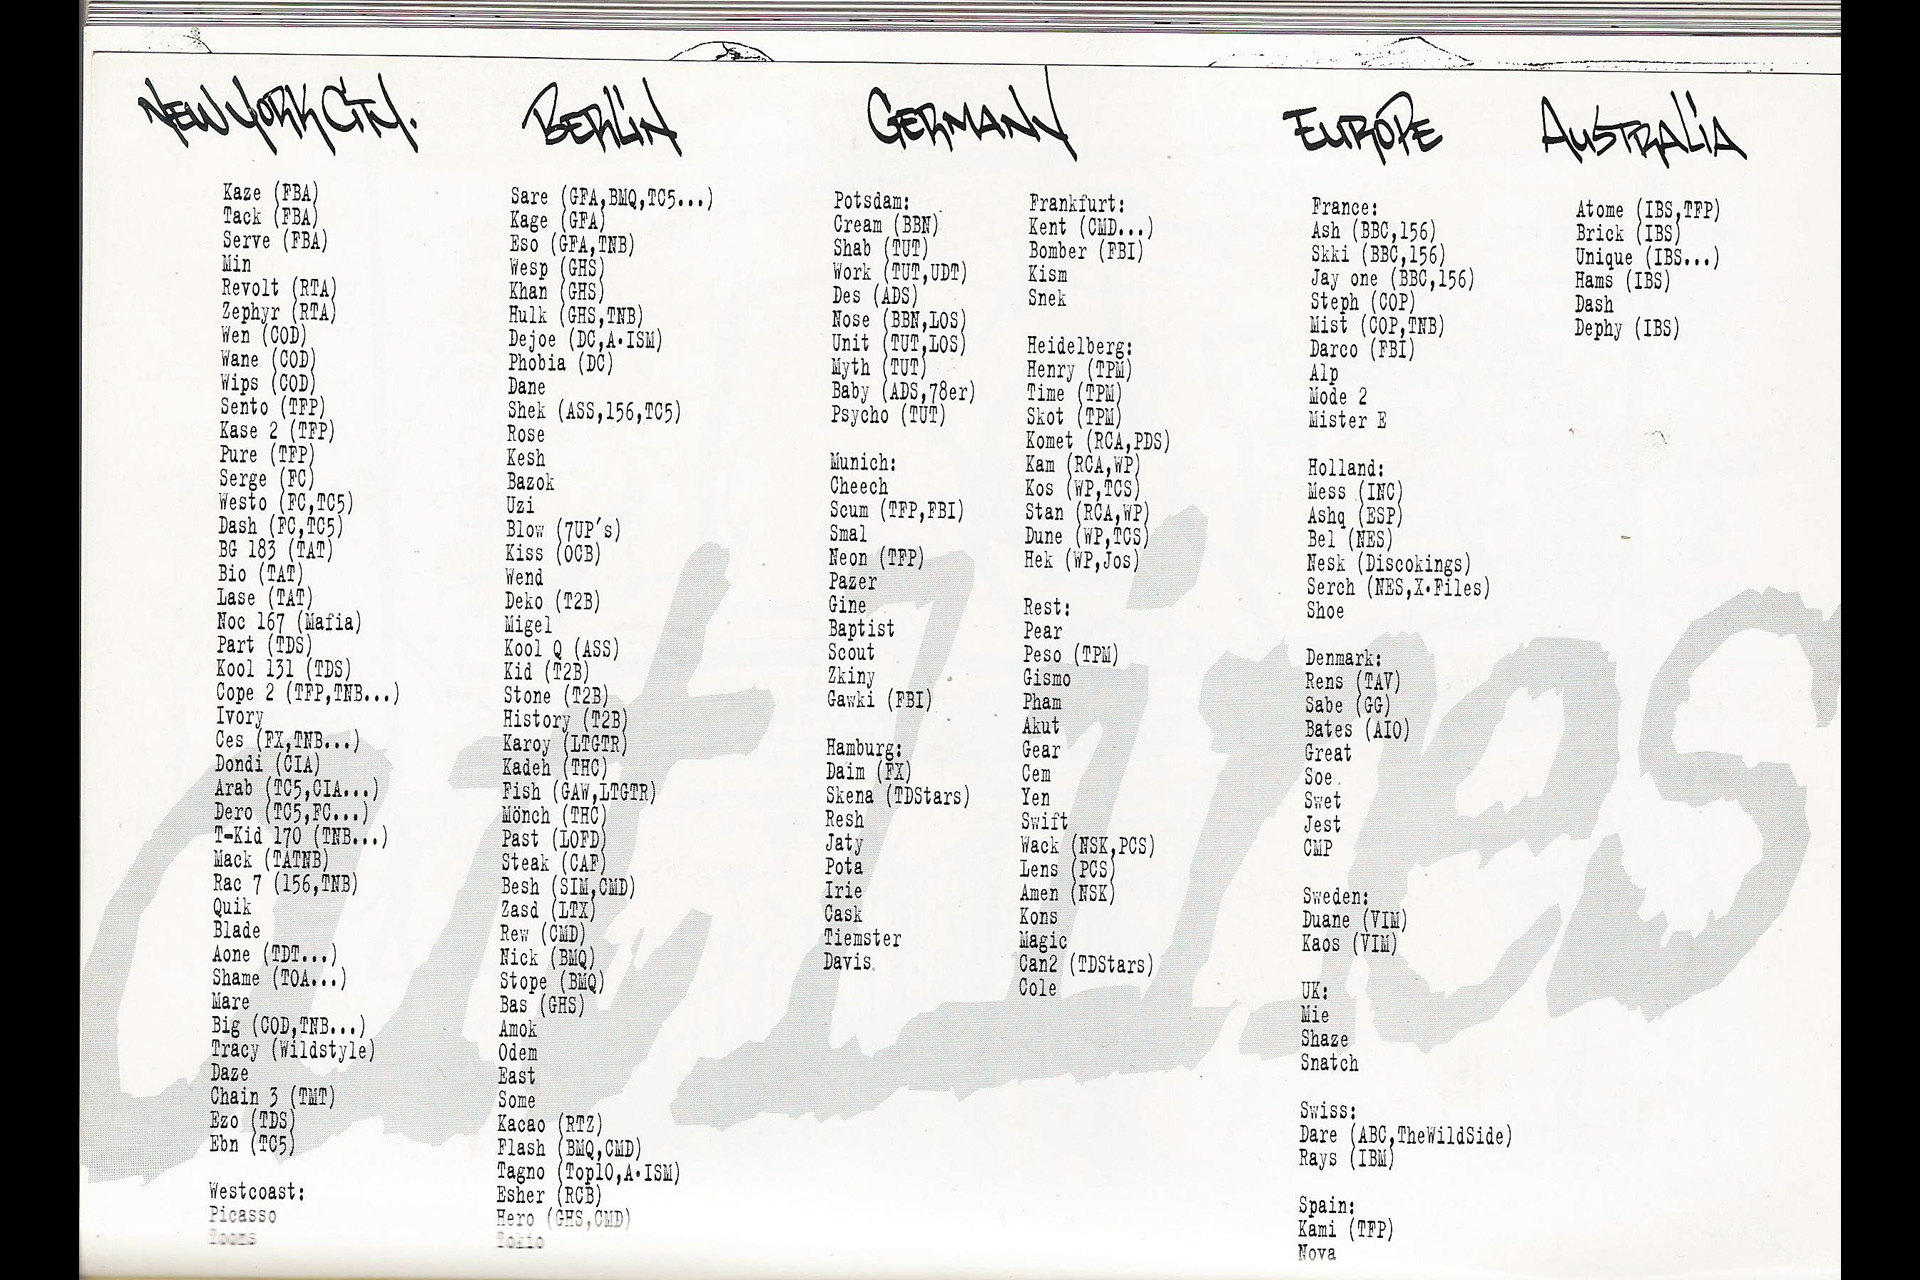 NEW YORK CITY.
Kaze (FBA)
Tack (FBA)
Serve (FBA)
Min
Revolt (RTA)
Zephyr (RTA)
Wen (COD)
Wane (COD)
Wips (COD)
Sento (TFP)
Kase 2 (TFP)
Pure (TFP)
Serge (FC)
Westo (FC,TC5)
Dash (FC,TC5)
BG 183 (TAT)
Bio (TAT)
Lase (TAT)
Noc 167 (Mafia)
Part (TDS)
Kool 131 (TDS)
Cope 2 (TFP,TNB...)
Ivory
Ces (FX,TNB...)
Dondi (CIA)
Arab (TC5,CIA...)
Dero (TC5,FC...)
T-Kid 170 (TNB...)
Mack (TATNB)
Rac 7 (156,TNB)
Quik
Blade
Aone (TDT...)
Shame (TOA...)
Mare
Big (COD,TNB...)
Tracy (Wildstyle)
Daze
Chain 3 (TMT)
Ezo (TDS)
Ebn (TC5)
Westcoast:
Picasso
Tooms
BERLIN
Sare (GFA,BMQ,TC5...)
Kage (GFA)
Eso (GFA,TNB)
Wesp (GHS)
Khan (GHS)
Hulk (GHS,TNB)
Dejoe (DC,A·ISM)
Phobia (DC)
Dane
Shek (ASS,156,TC5)
Rose
Kesh
Bazok
Uzi
Blow (7UP's)
Kiss (OCB)
Wend
Deko (T2B)
Migel
Kool Q (ASS)
Kid (T2B)
Stone (T2B)
History (T2B)
Karoy (LTGTR)
Kadeh (THC)
Fish (GAW,LTGTR)
Mönch (THC)
Past (LOFD)
Steak (CAF)
Besh (SIM,CMD)
Zasd (LTX)
Rew (CMD)
Nick (BMQ)
Stope (BMQ)
Bas (GHS)
Amok
Odem
East
Some
Kacao (RTZ)
Flash (BMQ,CMD)
Tagno (Top10,A·ISM)
Esher (RCB)
Hero (GHS,CMD)
Tokio
GERMANY
Potsdam:
Cream (BBN)
Shab (TUT)
Work (TUT,UDT)
Des (ADS)
Nose (BBN,LOS)
Unit (TUT,LOS)
Myth (TUT)
Baby (ADS,78er)
Psycho (TUT)
Munich:
Cheech
Scum (TFP,FBI)
Smal
Neon (TFP)
Pazer
Gine
Baptist
Scout
Zkiny
Gawki (FBI)
Hamburg:
Daim (FX)
Skena (TDStars)
Resh
Jaty
Pota
Irie
Cask
Tiemster
Davis
Frankfurt:
Kent (CMD...)
Bomber (FBI)
Kism
Snek
Heidelberg:
Henry (TPM)
Time (TPM)
Skot (TPM)
Komet (RCA,PDS)
Kam (RCA,WP)
Kos (WP,TCS)
Stan (RCA,WP)
Dune (WP,TCS)
Hek (WP,Jos)
Rest:
Pear
Peso (TPM)
Gismo
Pham
Akut
Gear
Cem
Yen
Swift
Wack (NSK,PCS)
Lens (PCS)
Amen (NSK)
Kons
Magic
Can2 (TDStars)
Cole
EUROPE
France:
Ash (BBC,156)
Skki (BBC,156)
Jay one (BBC,156)
Steph (COP)
Mist (COP,TNB)
Darco (FBI)
Alp
Mode 2
Mister E
Holland:
Mess (INC)
Ashq (ESP)
Bel (NES)
Nesk (Discokings)
Serch (NES,X·Files)
Shoe
Denmark:
Rens (TAV)
Sabe (GG)
Bates (AIO)
Great
Soe
Swet
Jest
CMP
Sweden:
Duane (VIM)
Kaos (VIM)
UK:
Mie
Shaze
Snatch
Swiss:
Dare (ABC,TheWildSide)
Rays (IBM)
Spain:
Kami (TFP)
Nova
AUSTRALIA
Atome (IBS,TFP)
Brick (IBS)
Unique (IBS...)
Hams (IBS)
Dash
Dephy (IBS)